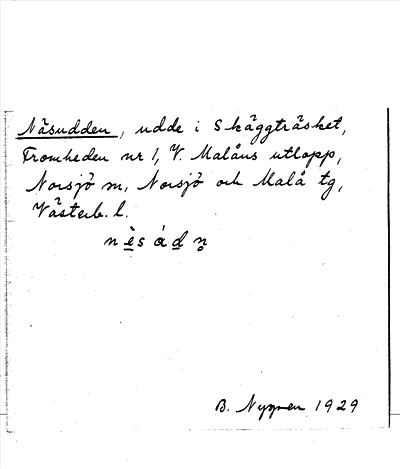 Näsudden, udde i Skäggträsket,
Fromheden nr 1, V. Malåns utlopp,
Norsjö sn, Norsjö och Malå tg,
Västerb. l.
n e̠̊ s å d̠ n̥
B. Nygren 1929